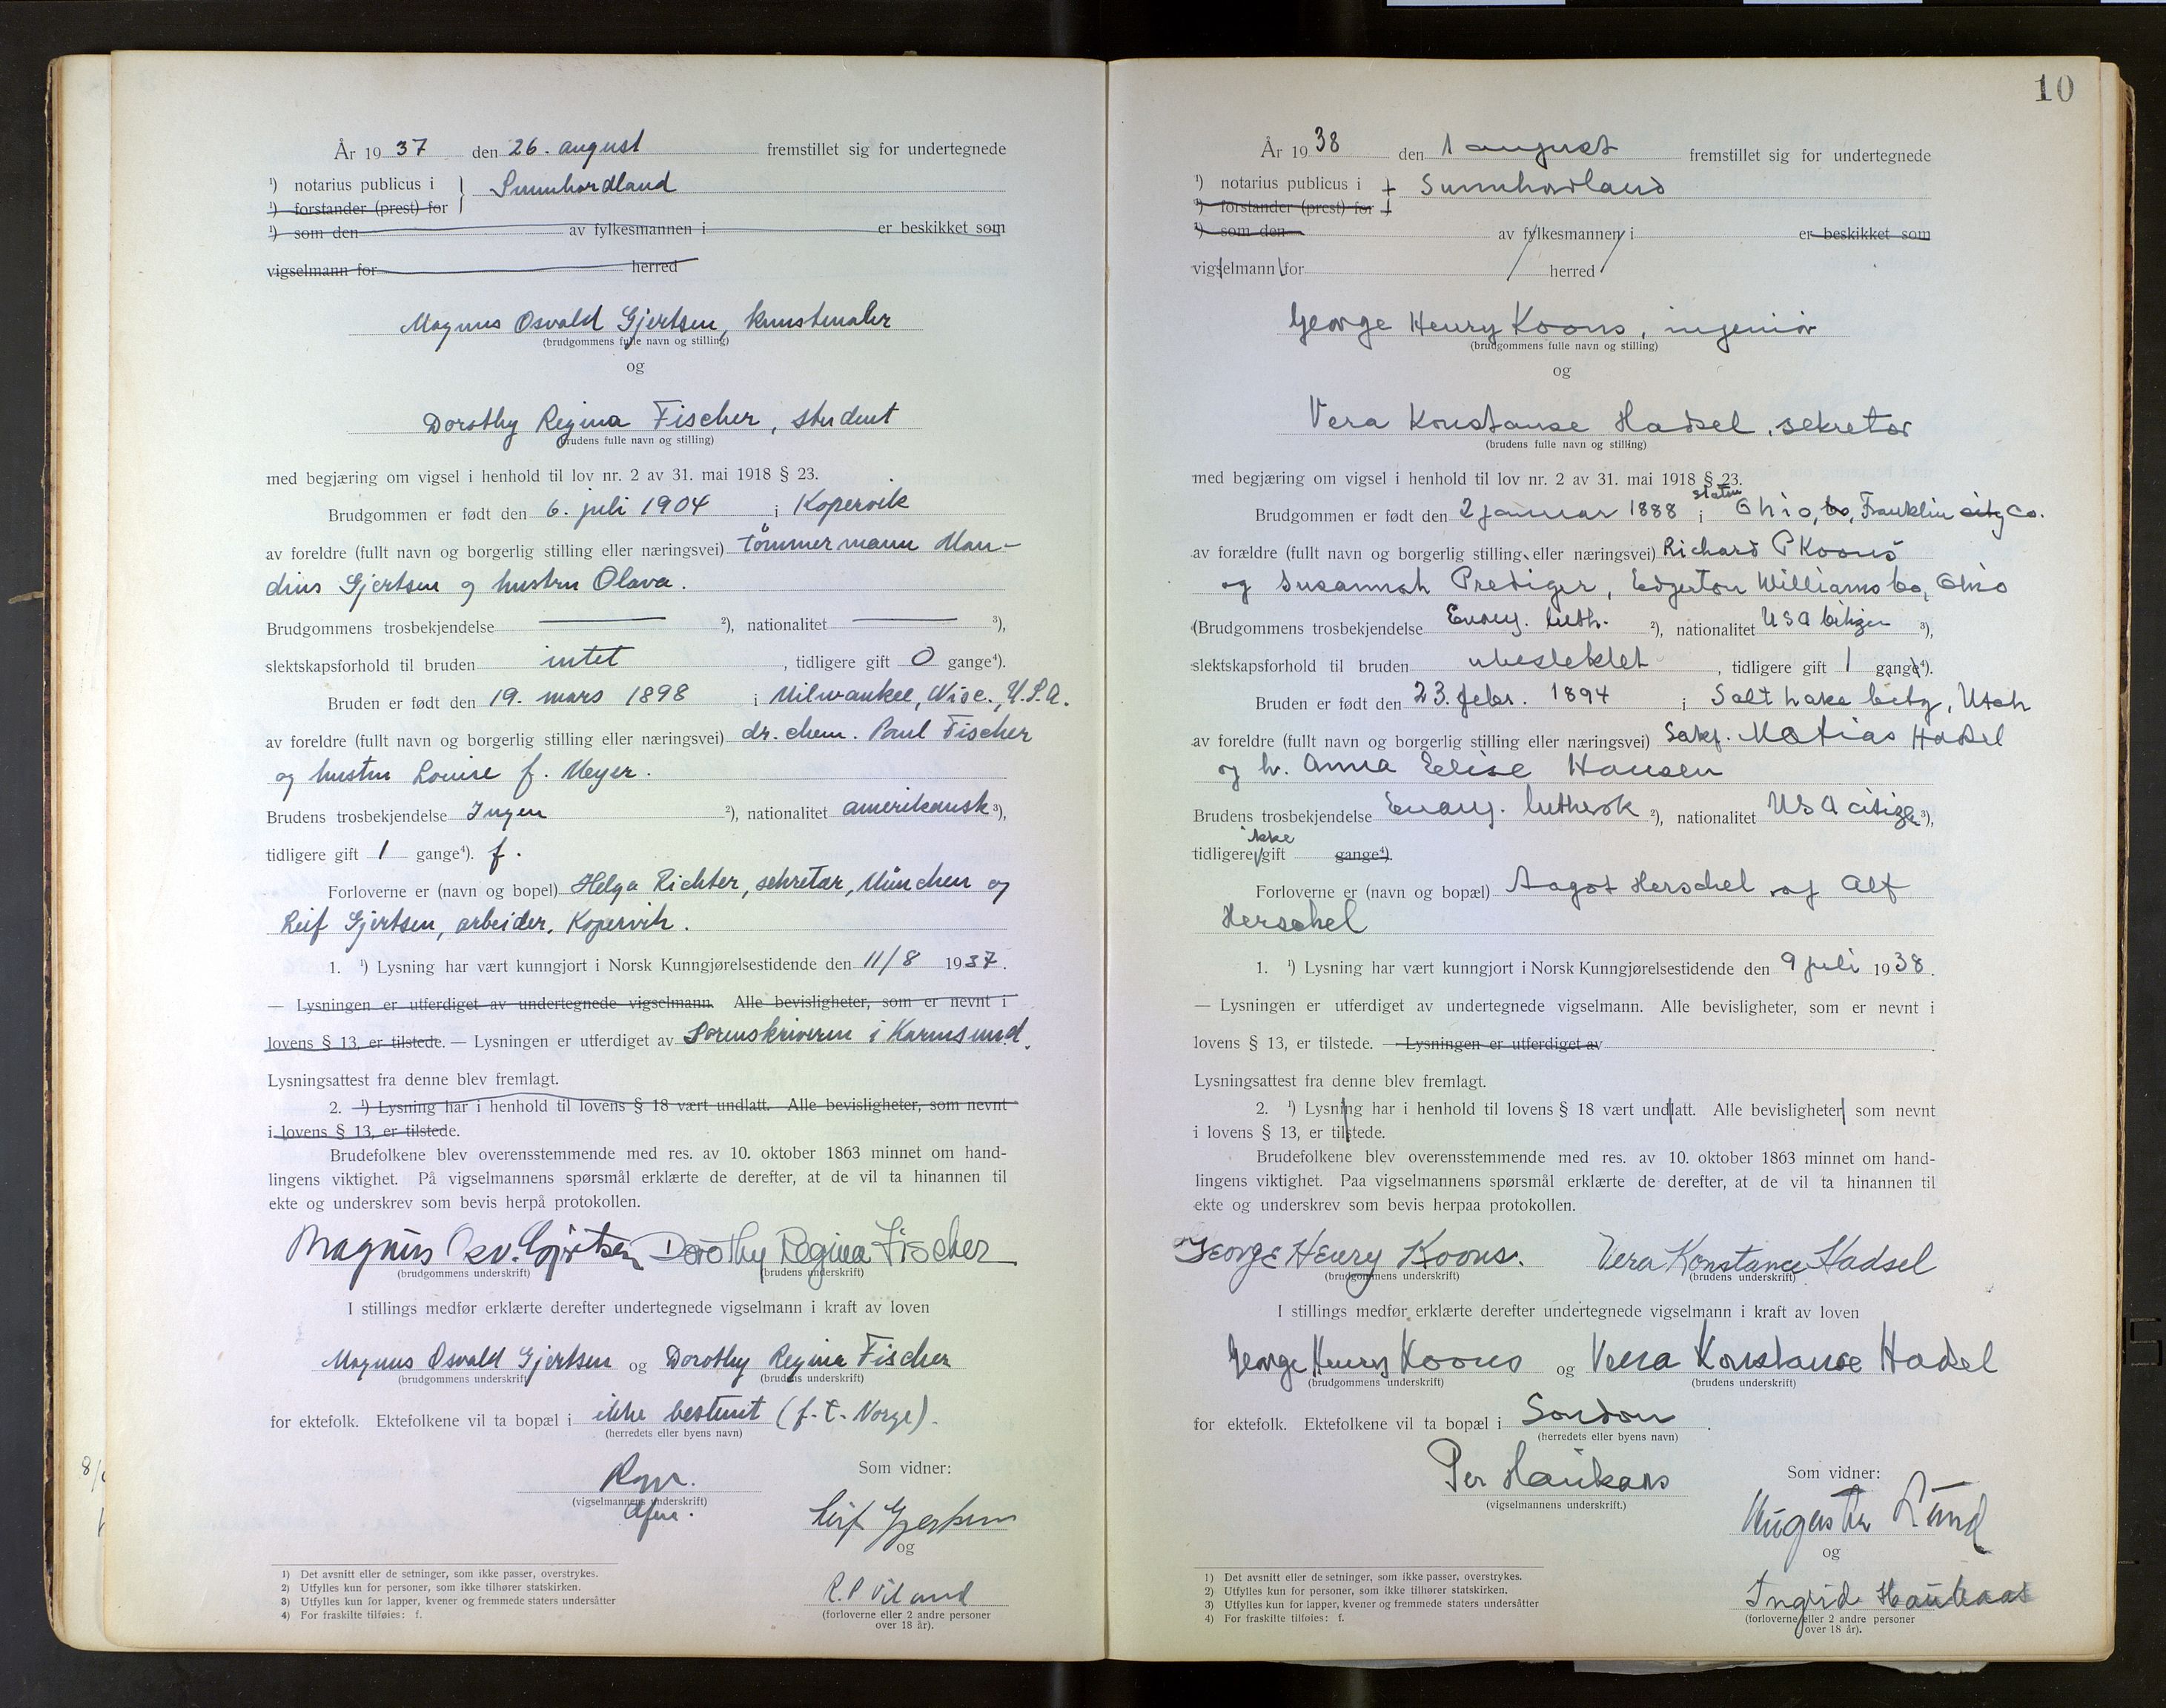 År 1937 den 26. august fremstillet sig for undertegnede
¹) notarius publicus i } Sunnhordland
¹) forstander (prest) for
¹) som den av fylkesmannen i er beskikket som
vigselmann for herred
Magnus Osvald Gjertsen, kunstmaler
(brudgommens fulle navn og stilling)
og
Dorothy Regina Fischer, student
(brudens fulle navn og stilling)
med begjæring om vigsel i henhold til lov nr. 2 av 31. mai 1918 § 23.
Brudgommen er født den 6. juli 1904 i Kopervik
av foreldre (fullt navn og borgerlig stilling eller næringsvei) tömmermann Man-
dius Gjertsen og hustru Olava.
Brudgommens trosbekjendelse — ²), nationalitet — ³),
slektskapsforhold til bruden intet, tidligere gift 0 gange⁴).
Bruden er født den 19. mars 1898 i Milwaukee, Wisc., U.S.A.
av foreldre (fullt navn og borgerlig stilling eller næringsvei) dr. chem. Paul Fischer
og hustru Louise f. Meyer.
Brudens trosbekjendelse Ingen ²), nationalitet amerikansk ³),
tidligere gift 1 gange⁴). f.
Forloverne er (navn og bopel) Helga Richter, sekretær, München og
Leif Gjertsen, arbeider, Kopervik.
1. ¹) Lysning har vært kunngjort i Norsk Kunngjørelsestidende den 11/8 1937.
— Lysningen er utferdiget av undertegnede vigselmann. Alle bevisligheter, som er nevnt i
lovens § 13, er tilstede. — Lysningen er utferdiget av Sorenskriveren i Karmsund.
Lysningsattest fra denne blev fremlagt.
2. ¹) Lysning har i henhold til lovens § 18 vært undlatt. Alle bevisligheter, som nevnt
i lovens § 13, er tilstede.
Brudefolkene blev overensstemmende med res. av 10. oktober 1863 minnet om hand-
lingens viktighet. På vigselmannens spørsmål erklærte de derefter, at de vil ta hinannen til
ekte og underskrev som bevis herpå protokollen.
Magnus Osv. Gjertsen Dorothy Regina Fischer
(brudgommens underskrift) (brudens underskrift)
I stillings medfør erklærte derefter undertegnede vigselmann i kraft av loven
Magnus Osvald Gjertsen og Dorothy Regina Fischer
(brudgommens underskrift) (brudens underskrift)
for ektefolk. Ektefolkene vil ta bopæl i ikke bestemt (f.t. Norge).
(herredets eller byens navn)
Som vidner:
(vigselmannens underskrift)
Leif Gjertsen
og
R. P. Viland
(forloverne eller 2 andre personer
over 18 år).
1) Det avsnitt eller de setninger, som ikke passer, overstrykes.
2) Utfylles kun for personer, som ikke tilhører statskirken.
3) Utfylles kun for lapper, kvener og fremmede staters undersåtter
4) For fraskilte tilføies: f.
10
År 1938 den 1 august fremstillet sig for undertegnede
¹) notarius publicus i Sunnhordland
¹) forstander (prest) for
¹) som den av fylkesmannen i er beskikket som
vigselmann for herred
George Henry Koons, ingeniør
(brudgommens fulle navn og stilling)
og
Vera Konstanse Hadsel, sekretær
(brudens fulle navn og stilling)
med begjæring om vigsel i henhold til lov nr. 2 av 31. mai 1918 § 23.
Brudgommen er født den 2 januar 1888 i staten Ohio, co, Franklin city Co.
av forældre (fullt navn og borgerlig stilling eller næringsvei) Richard P Koons
og Susannah Prediger, Edgerton Williams Co, Ohio
(Brudgommens trosbekjendelse Evang. luth. ²), nationalitet USA citizen ³),
slektskapsforhold til bruden ubeslektet, tidligere gift 1 gange⁴).
Bruden er født den 23. febr. 1894 i Salt Lake City, Utah
av foreldre (fullt navn og borgerlig stilling eller næringsvei) Sakf. Matias Hadsel
og h. Anna Elise Hansen
Brudens trosbekjendelse Evang. luthersk ²), nationalitet USA citizen ³),
tidligere ikke gift gange⁴).
Forloverne er (navn og bopæl) Aagot Herschel og Alf
Herschel
1. ¹) Lysning har vært kunngjort i Norsk Kunngjørelsestidende den 9 juli 1938.
— Lysningen er utferdiget av undertegnede vigselmann. Alle bevisligheter, som er nevnt i
lovens § 13, er tilstede. — Lysningen er utferdiget av
Lysningsattest fra denne blev fremlagt.
2. ¹) Lysning har i henhold til lovens § 18 vært undlatt. Alle bevisligheter, som nevnt
i lovens § 13, er tilstede.
Brudefolkene blev overensstemmende med res. av 10. oktober 1863 minnet om hand-
lingens viktighet. Paa vigselmannens spørsmål erklærte de derefter, at de vil ta hinannen til
ekte og underskrev som bevis herpaa protokollen.
George Henry Koons. Vera Konstance Hadsel
(brudgommens underskrift) (brudens underskrift)
I stillings medfør erklærte derefter undertegnede vigselmann i kraft av loven
George Henry Koons og Vera Konstanse Hadsel
(brudgommens underskrift) (brudens underskrift)
for ektefolk. Ektefolkene vil ta bopæl i London.
(herredets eller byens navn)
Per Haukaas
(vigselmannens underskrift.)
Som vidner:
Augusta Lund
og
Ingrid Haukaas
(forloverne eller 2 andre personer
over 18 år).
1) Det avsnitt eller de setninger, som ikke passer, overstrykes.
2) Utfylles kun for personer, som ikke tilhører statskirken.
3) Utfylles kun for lapper, kvener og fremmede staters undersåtter
4) For fraskilte tilføies: f.